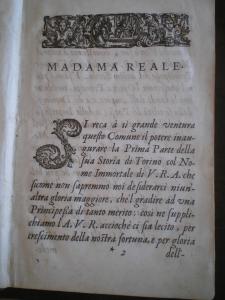 MADAMA REALE.
SI reca à sì grande ventura
questo Comune il potere inau-
gurare la Prima Parte della
sua Storia di Torino col No-
me Immortale di V. R. A. che
sicome non sapremmo noi desiderarci niun'
altra gloria maggiore, ch'l gradire ad una
Principessa di tanto merito; così ne suppli-
chiamo l'A. V. R. acciochè ci sia lecito, per
crescimento della nostra fortuna, e per gloria
* 2
dell-